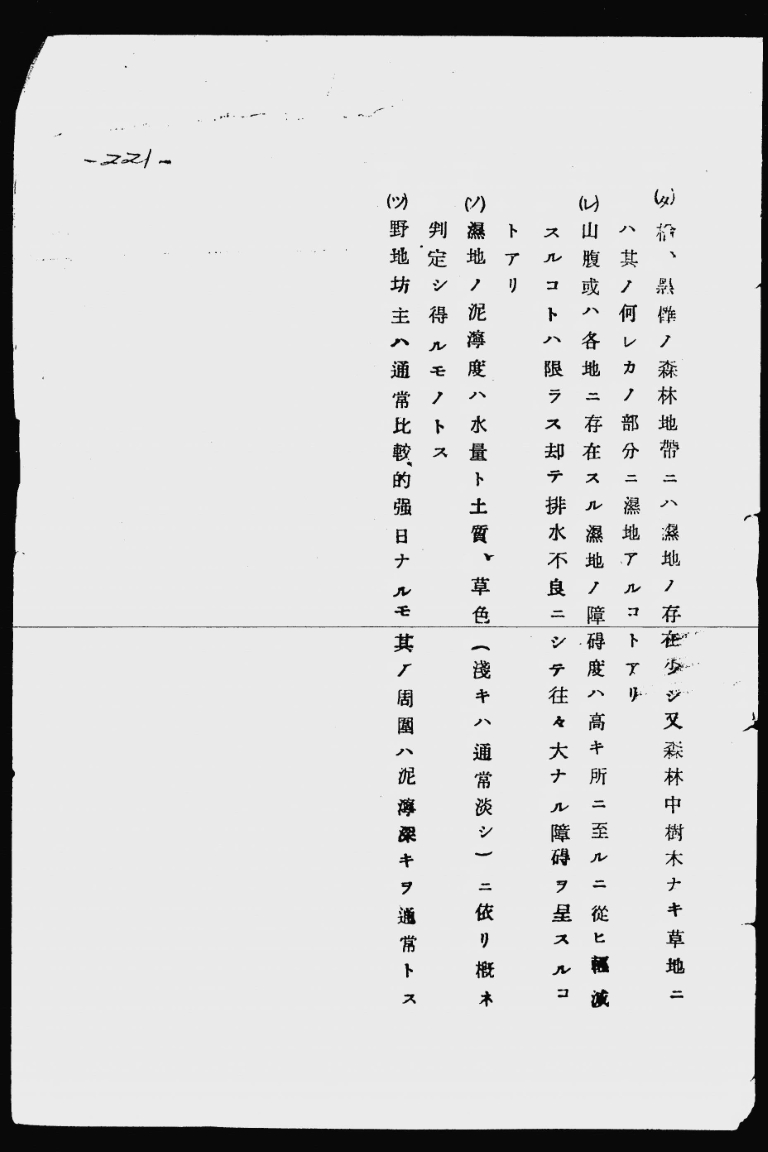 -221-
(タ) 松、黒樺ノ森林地帶ニハ濕地ノ存在少シ又森林中樹木ナキ草地ニ
ハ其ノ何レカノ部分ニ濕地アルコトアリ
(レ) 山腹或ハ各地ニ存在スル濕地ノ障碍度ハ高キ所ニ至ルニ從ヒ輕減
スルコトハ限ラス却テ排水不良ニシテ往々大ナル障碍ヲ呈スルコ
トアリ
(ソ) 濕地ノ泥濘度ハ水量ト土質、草色(淺キハ通常淡シ)ニ依リ概ネ
判定シ得ルモノトス
(ツ) 野地坊主ハ通常比較的强日ナルモ其ノ周圍ハ泥濘深キヲ通常トス